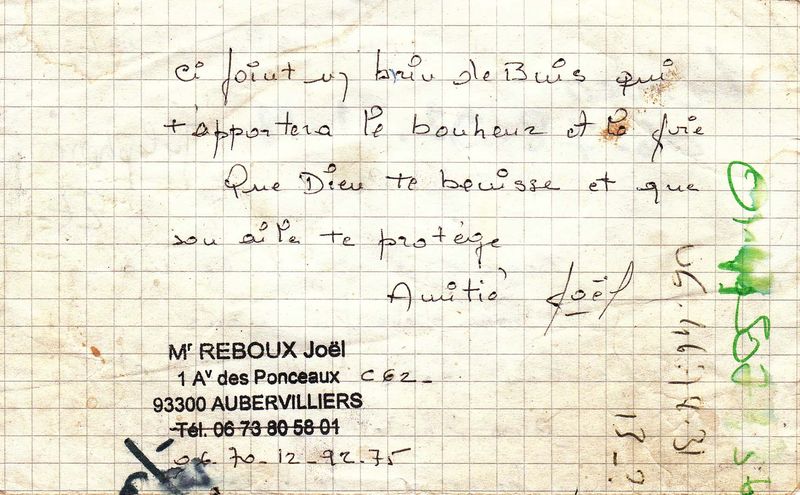 Ci joint un brin de Buis qui
t'apportera le bonheur et la joie
Que Dieu te bénisse et que
son aile te protége
Amitié Joël
Mr REBOUX Joël
1 Av des Ponceaux C62-
93300 AUBERVILLIERS
Tél. 06 73 80 58 01
06-70-12-92-75